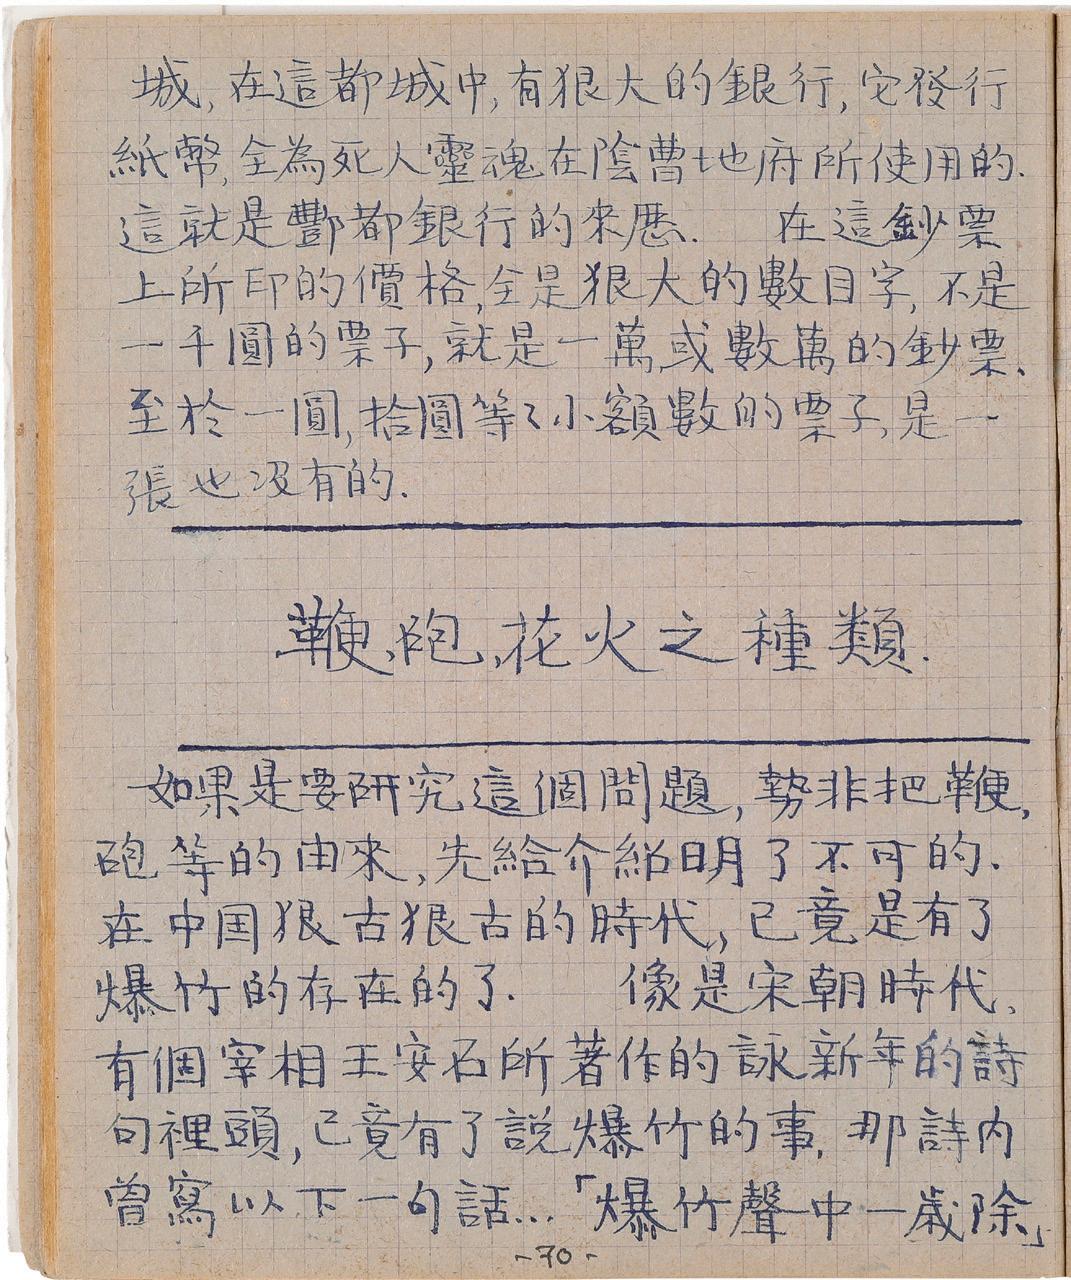 城,在這都城中,有狠大的銀行,它發行
紙幣,全為死人靈魂在陰曹地府所使用的.
這就是酆都銀行的來歷. 在這鈔票
上所印的價格,全是狠大的數目字,不是
一千圓的票子,就是一萬或數萬的鈔票、
至於一圓,拾圓等々小額數的票子,是一
張也沒有的.
鞭,砲,花火之種類.
如果是要研究這個問題,勢非把鞭,
砲等的由來,先給介紹明了不可的.
在中国狠古狠古的時代,已竟是有了
爆竹的存在的了. 像是宋朝時代、
有個宰相王安石所著作的詠新年的詩
句裡頭,已竟有了說爆竹的事,那詩內
曾寫以下一句話…「爆竹聲中一歲除」
-70-